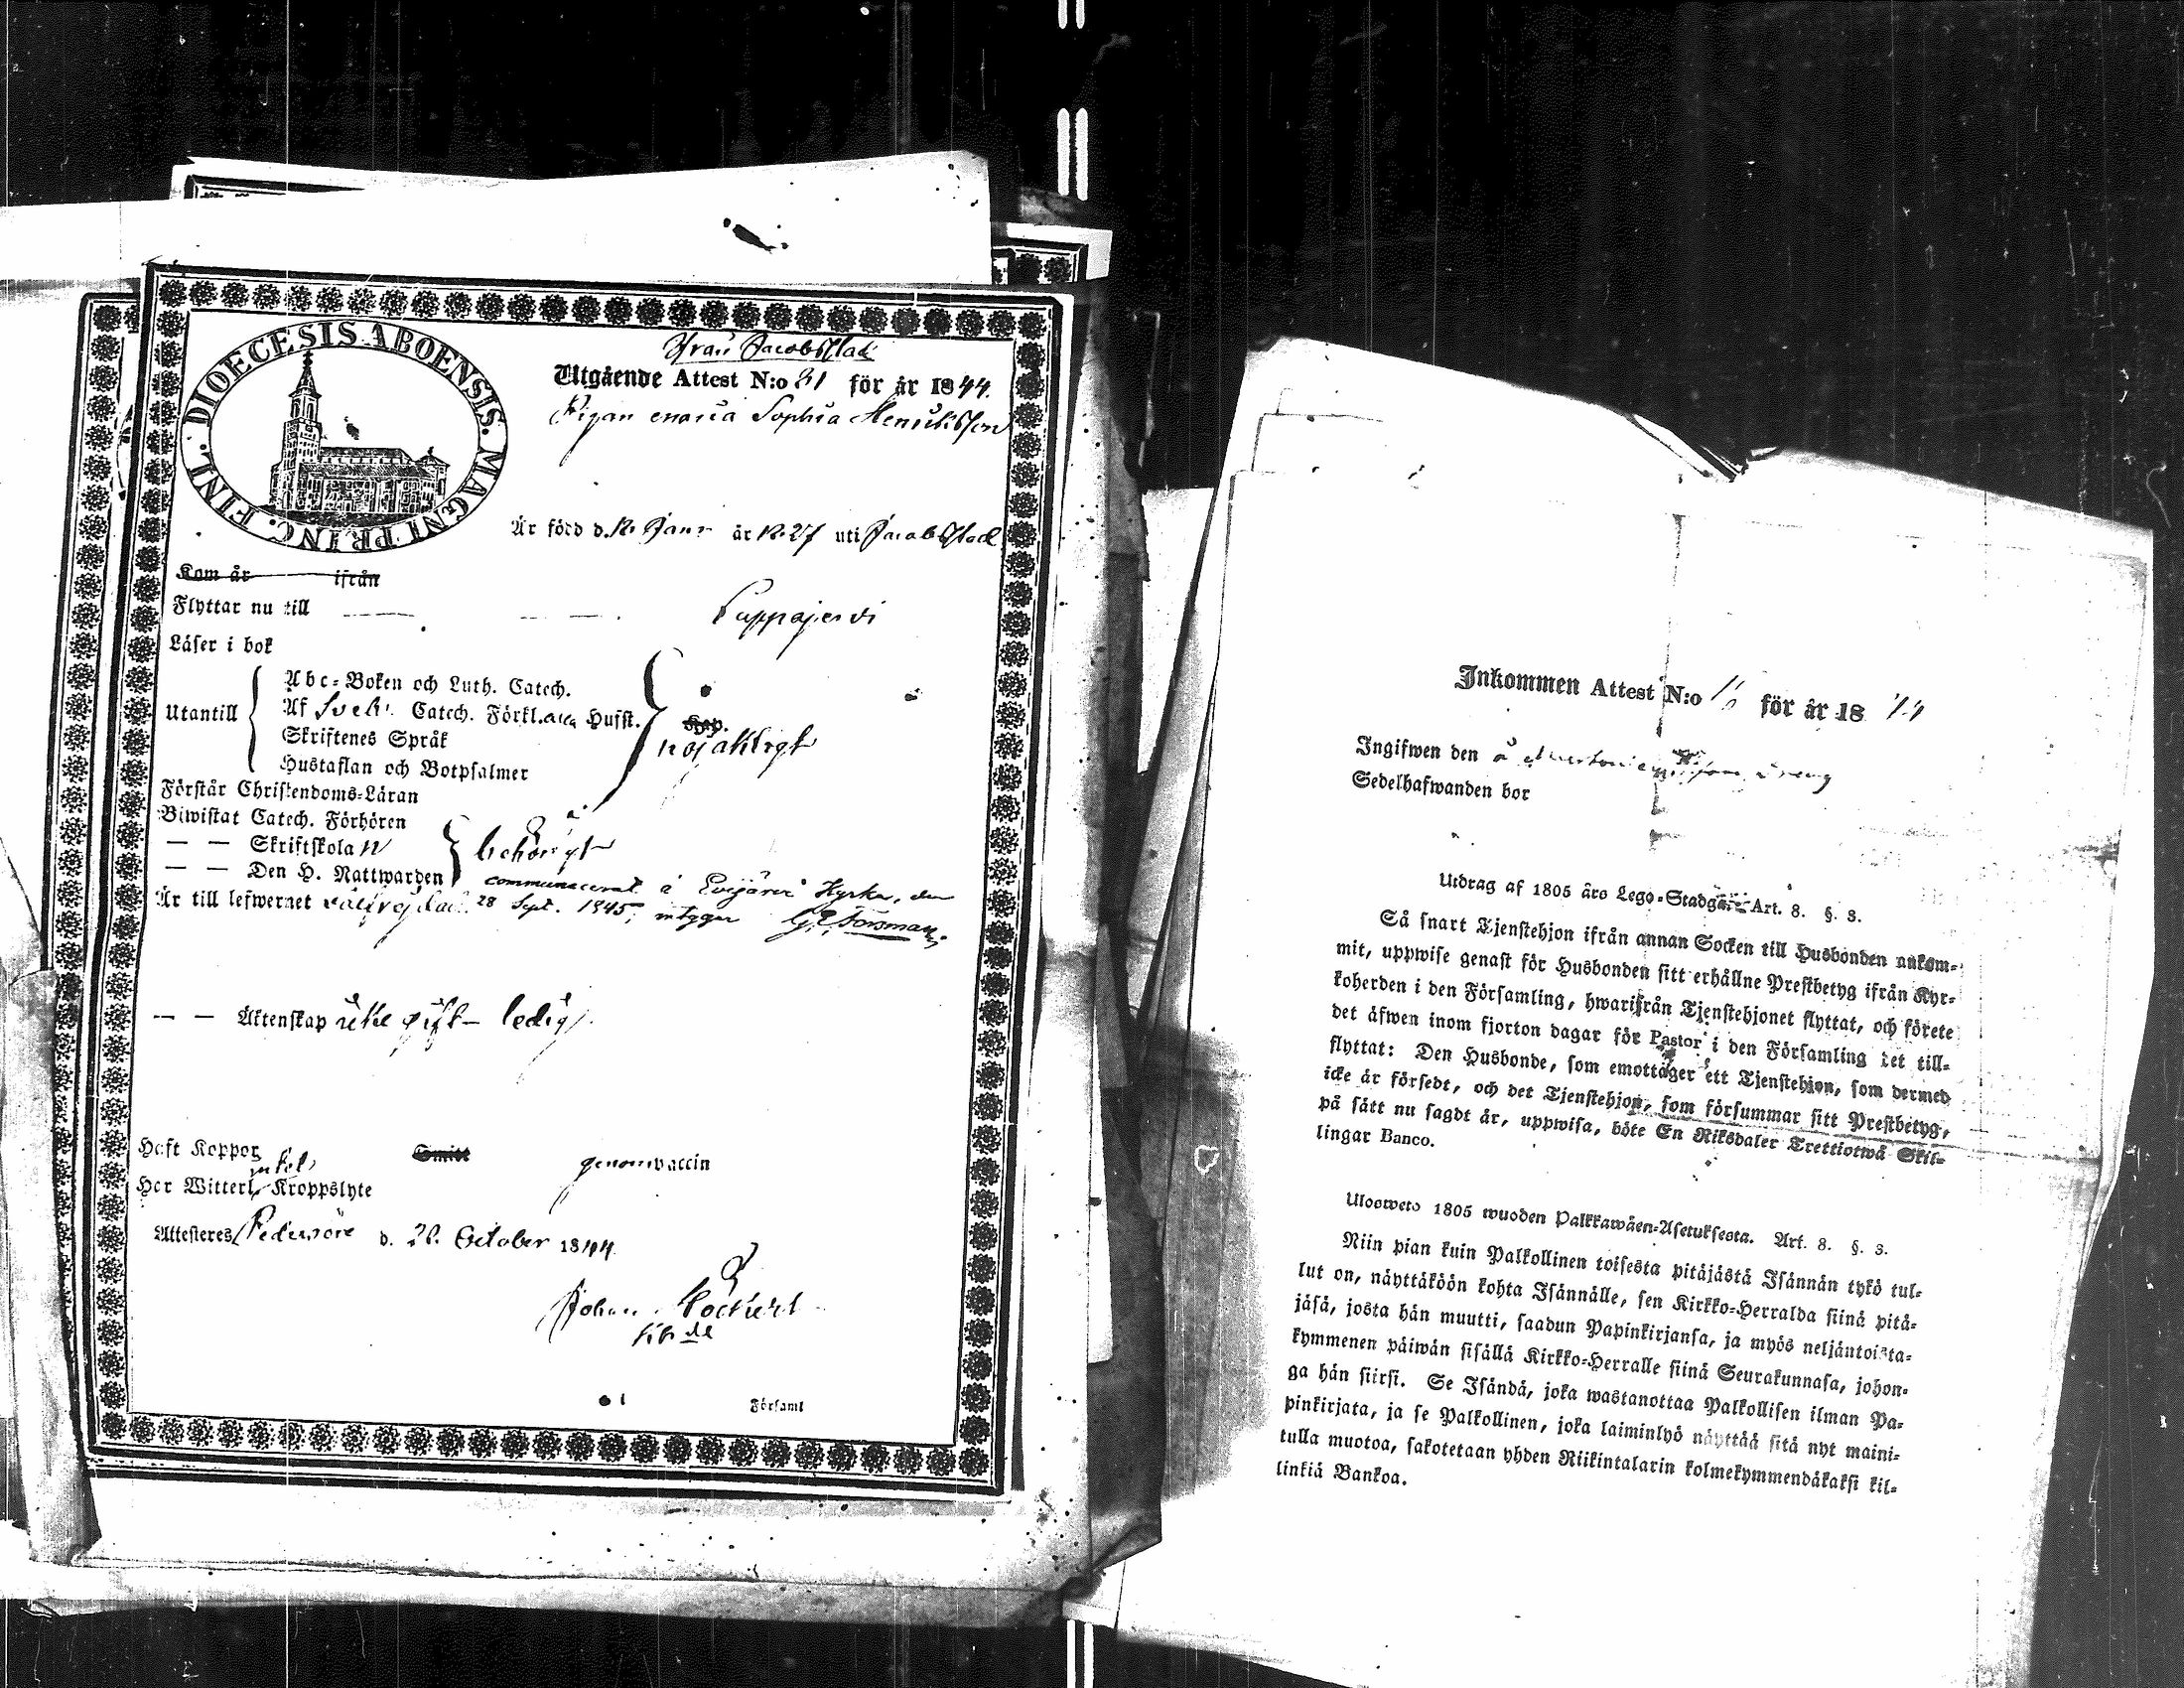 DIOECESIS ABOENSIS. MAGNI PRINC. FINL.
Från Jacobstad
Utgående Attest N:o 31 för år 1844.
Pigan Maria Sophia Henriksson
Är född d. 12 Janr år 1827 uti Jacobstad
Kom år ifrån
Flyttar nu till Lappajervi
Läser i bok
Utantill
Abc-Boken och Luth. Catech.
Af Catech. Förkl. Husfl.
Skriftenes Språk
Hustaflan och Botpsalmer
Kap.
nöjaktigt
Förstår Christendoms-Läran
Biwistat Catech. Förhören
— — Skriftskolan
— — Den H. Nattwarden
behörigt
communicerat å Evijärvi Kyrka, den
28 Sept. 1845, intygar G. E. Forsman.
Är till lefwernet välfrejdad.
— — Äktenskap icke gift – ledig.
Haft Koppor Smitt genom vaccin
Har Witterl. Kroppslyte
Attesteres Pedersöre d. October 1844
Johan
Församl
Inkommen Attest N:o för år 18
Ingifwen den
Sedelhafwanden bor
Utdrag af 1805 års Lego-Stadga Art. 8. §. 3.
Så snart Tjenstehjon ifrån annan Socken till Husbonden ankom-
mit, uppwise genast för Husbonden sitt erhållne Prestbetyg ifrån Kyr-
koherden i den Församling, hwarifrån Tjenstehjonet flyttat, och förete
det äfwen inom fjorton dagar för Pastor i den Församling det till-
flyttat: Den Husbonde, som emottager ett Tjenstehjon, som dermed
icke är försedt, och det Tjenstehjon, som försummar sitt Prestbetyg,
på sätt nu sagdt är, uppwisa, böte En Riksdaler Trettiotwå Skil-
lingar Banco.
Ulosweto 1805 wuoden Palkkawäen-Asetuksesta. Art. 8. §. 3.
Niin pian kuin Palkollinen toisesta pitäjästä Isännän tykö tul-
lut on, näyttäköön kohta Isännälle, sen Kirkko-Herralda siinä pitä-
jäsä, josta hän muutti, saadun Papinkirjansa, ja myös neljäntoista-
kymmenen päiwän sisällä Kirkko-Herralle siinä Seurakunnasa, johon-
ga hän siirsi. Se Isändä, joka wastanottaa Palkollisen ilman Pa-
pinkirjata, ja se Palkollinen, joka laiminlyö näyttää sitä nyt maini-
tulla muotoa, sakotetaan yhden Riikintalarin kolmekymmendäkaksi kil-
linkiä Bankoa.